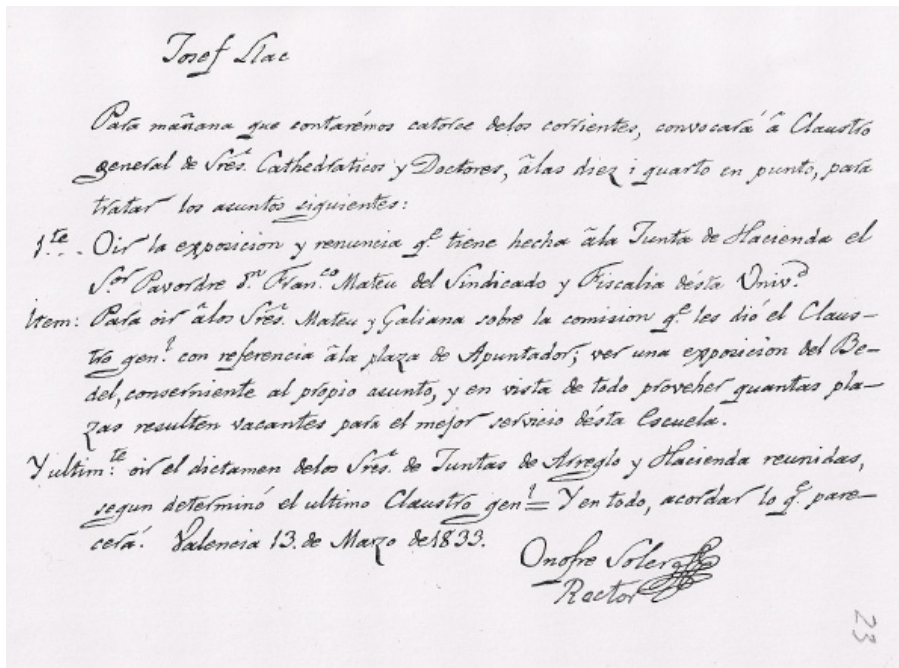 Josef Llac
Para mañana que contarémos catorce delos corrientes, convocará â Claustro
general de Sres. Cathedraticos y Doctores, âlas diez i quarto en punto, para
tratar los asuntos siguientes:
1.te .. Oir la exposicion y renuncia q.e tiene hecha âla Junta de Hacienda el
S.or Pavordre d.n Fran.co Mateu del Sindicado y Fiscalia désta Univ.d
Item: Para oir âlos Sres. Mateu y Galiana sobre la comision q.e les dió el Claus-
tro gen.l con referencia âla plaza de Apuntador; ver una exposicion del Be-
del, conserniente al propio asunto, y en vista de todo proveher quantas pla-
zas resulten vacantes para el mejor servicio désta Escuela.
Y ultim.te oir el dictamen delos Sres. de Juntas de Arreglo y Hacienda reunidas,
segun determinó el ultimo Claustro gen.l = Y en todo, acordar lo q.e pare-
cerá. Valencia 13. de Marzo de 1833.
Onofre Soler
Rector
23